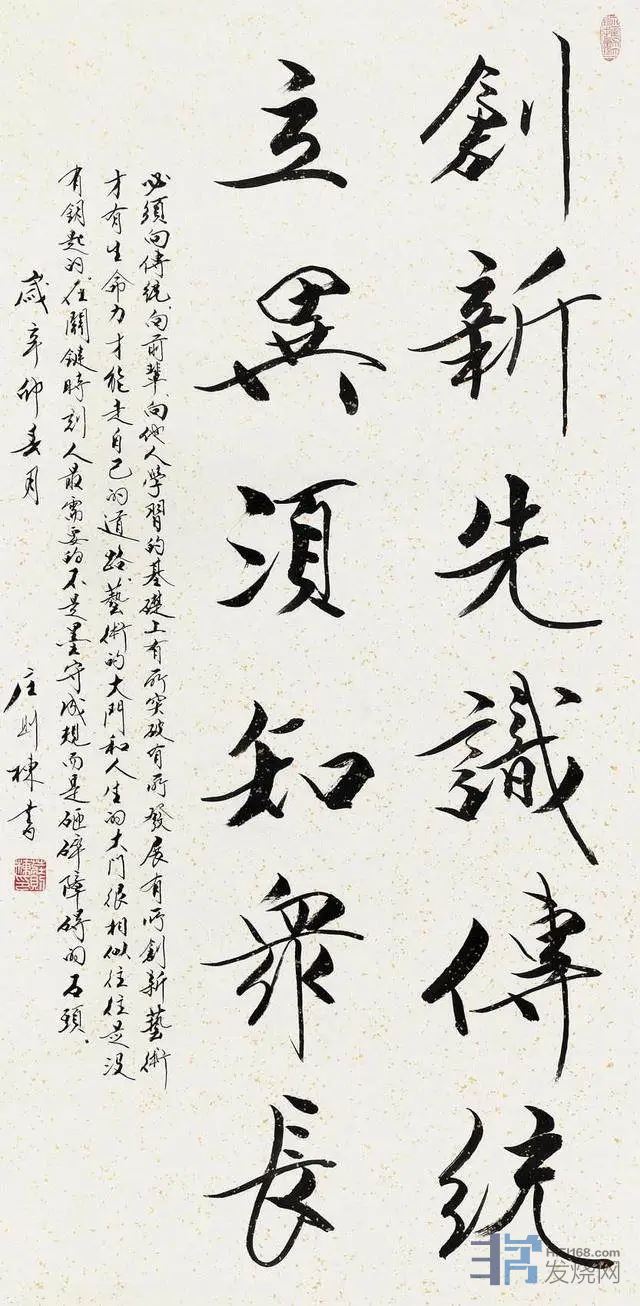 創新先識傳統
立異須知衆長
必須向傳統向前輩向他人學習的基礎上有所突破有所發展有所創新藝術
才有生命力才能走自己的道路藝術的大門和人生的大門很相似往往是沒
有鑰匙的在關鍵時刻人最需要的不是墨守成規而是砸碎障碍的石頭、
歲辛卯春月
庄則棟書
HIFI168.com
发烧网